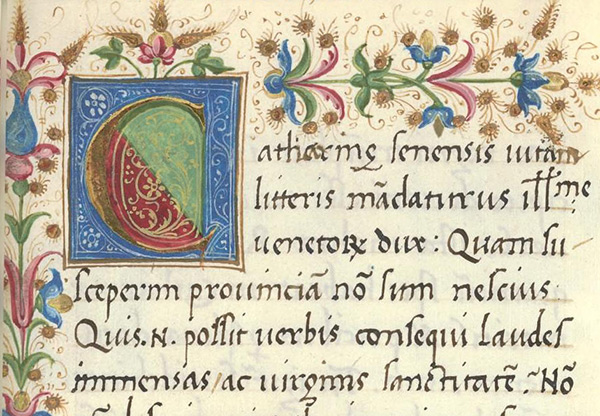 Catharinę senensis uitam
litteris mādaturus illme
uenetoꝝ dux: Quam su
sceperim prouinciā nō sum nescius.
Quis .N. possit uerbis consequi laudes
immensas, ac uirginis sanctitatē. Nō